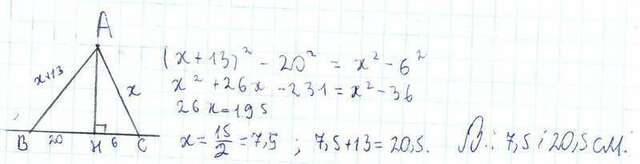 A
x+13
x
B
20
H
6
C
(x+13)² - 20² = x² - 6²
x² + 26x - 231 = x² - 36
26x = 195
x = 15/2 = 7,5 ; 7,5+13 = 20,5.
В.: 7,5 і 20,5 см.